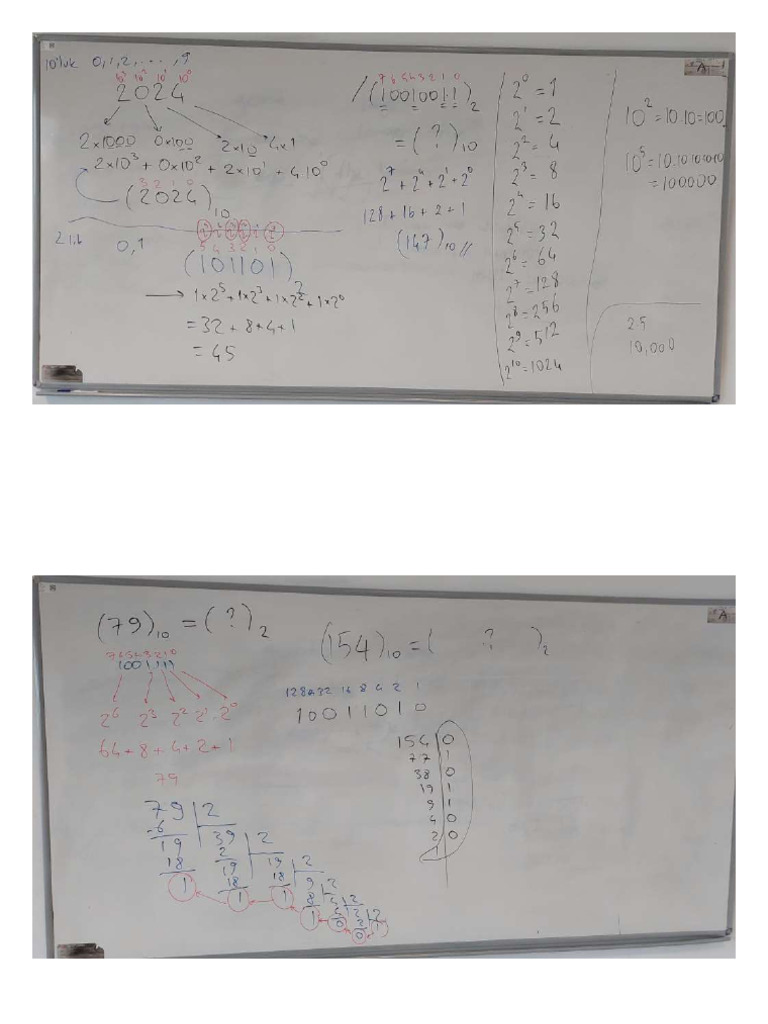 10'luk 0,1,2, ..., 9
10³ 10² 10¹ 10⁰
2024
2x1000 0x100 2x10 4x1
2x10³ + 0x10² + 2x10¹ + 4.10⁰
3 2 1 0
(2024)₁₀
2 lik 0,1
5 4 3 2 1 0
(101101)₂
→ 1x2⁵+1x2³+1x2²+1x2⁰
= 32 + 8+4+1
= 45
7 6 5 4 3 2 1 0
(10010011)₂
= (?)₁₀
2⁷ + 2⁴ + 2¹ + 2⁰
128 + 16 + 2 + 1
(147)₁₀ //
2⁰ = 1
2¹ = 2
2² = 4
2³ = 8
2⁴ = 16
2⁵ = 32
2⁶ = 64
2⁷ = 128
2⁸ = 256
2⁹ = 512
2¹⁰ = 1024
10² = 10.10 = 100
10⁵ = 10.10.10.10.10
= 100000
2.5
10,000
A
(79)₁₀ = (?)₂
7 6 5 4 3 2 1 0
1001111
2⁶ 2³ 2² 2¹ 2⁰
64 + 8 + 4 + 2 + 1
79
79 2
-6 39 2
19 2 19 2
18 19 18 9 2
1 18 1 8
1 1
(154)₁₀ = ( ? )₂
128 64 32 16 8 4 2 1
10011010
154 0
77 1
38 0
19 1
9 1
4 0
2 0
1
A